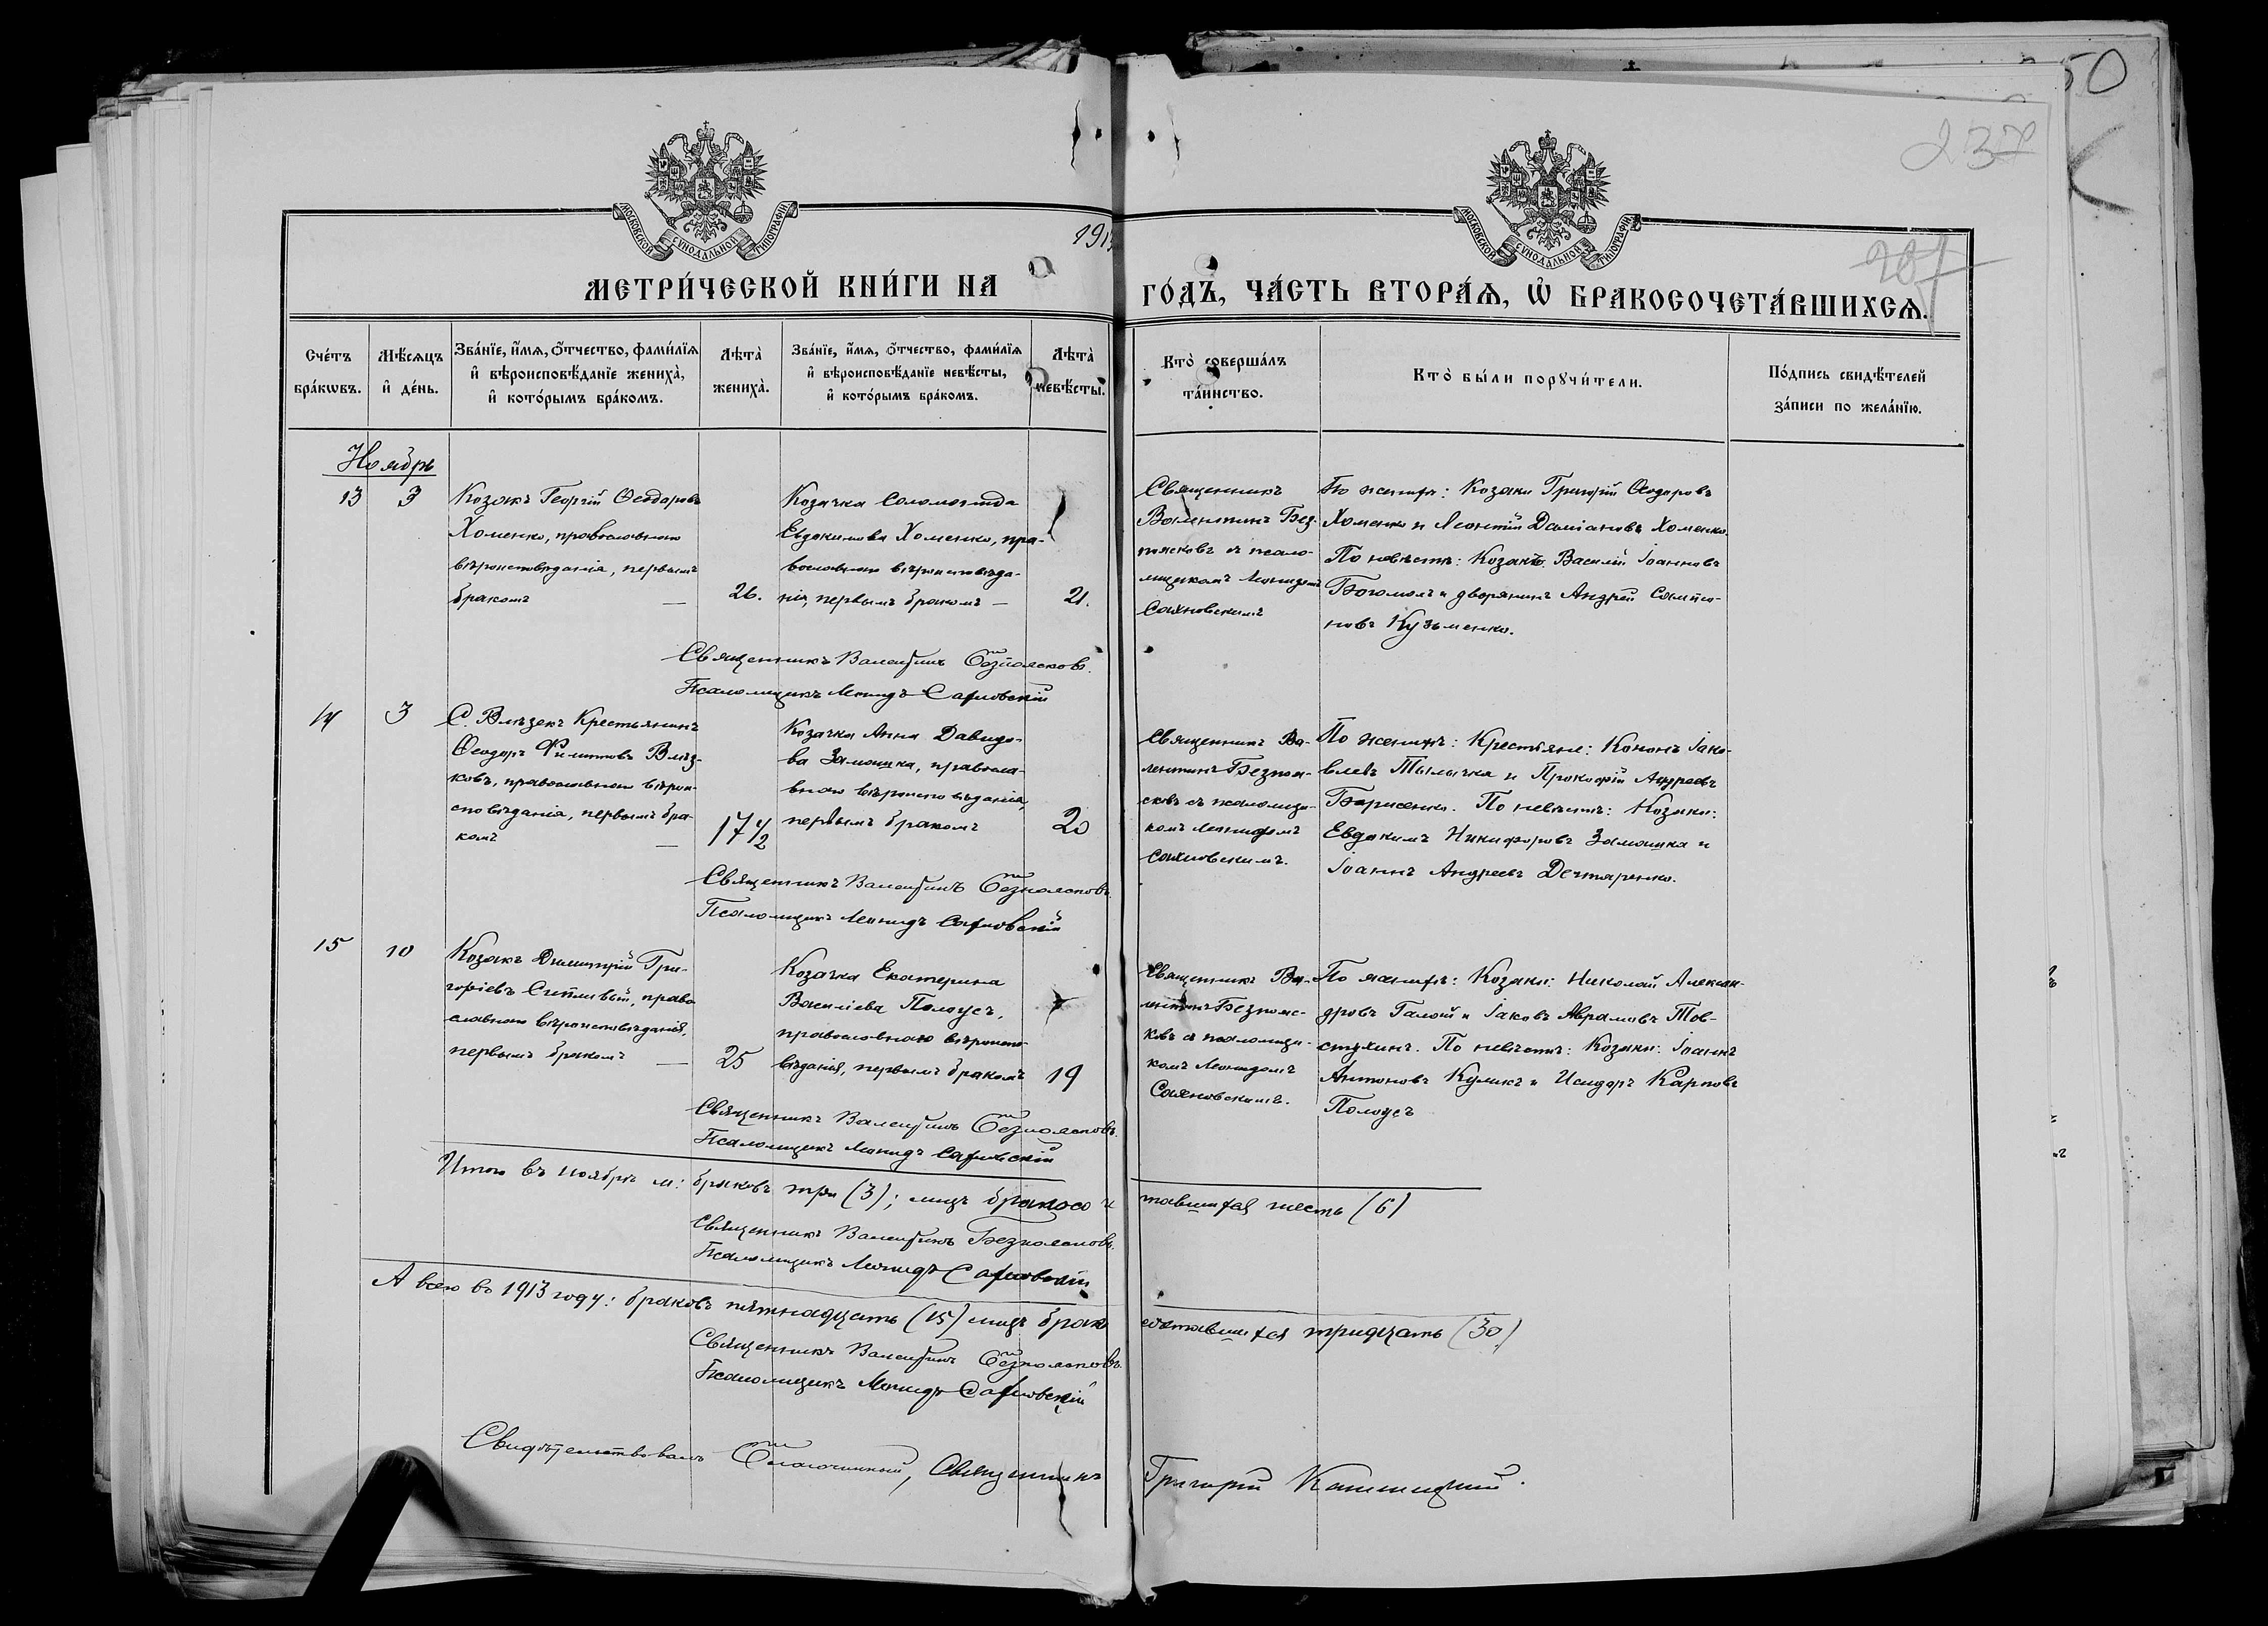 50
237
МОСКОВСКОЙ СѴНОДАЛЬНОЙ ТИПОГРАФІИ
МОСКОВСКОЙ СѴНОДАЛЬНОЙ ТИПОГРАФІИ
191
МЕТРИ́ЧЕСКОЙ КНИ́ГИ НА
ГО́ДЪ, ЧА́СТЬ ВТОРА́Ѧ, Ѡ҆ БРАКОСОЧЕТА́ВШИХСѦ.
Сче́тъ
бра́кѡвъ.
Мѣ́сѧцъ
и҆ де́нь.
Зва́нїе, и҆́мѧ, ѻ҆́тчество, фами́лїѧ
и҆ вѣроисповѣ́данїе жениха̀,
и҆ кото́рымъ бра́комъ.
Лѣта̀
жениха̀.
Зва́нїе, и҆́мѧ, ѻ҆́тчество, фами́лїѧ
и҆ вѣроисповѣ́данїе невѣ́сты,
и҆ кото́рымъ бра́комъ.
Лѣта̀
невѣ́сты.
Кто̀ соверша́лъ
та́инство.
Кто̀ бы́ли порꙋчи́тели.
По́дпись свидѣ́телей
за́писи по жела́нїю.
Ноябрь
13
3
Козакъ Георгій Ѳеодоровъ
Хоменко, православнаго
вѣроисповѣданія, первымъ
бракомъ —
26.
Козачка Соломонида
Евдокимова Хоменко, пра-
вославнаго вѣроисповѣда-
нія, первымъ бракомъ —
21.
Священникъ
Валентинъ Без-
поясковъ съ псало-
мщикомъ Леонидомъ
Сахновскимъ
По женихѣ: Козаки Григорій Ѳеодоровъ
Хоменко и Леонтій Даміановъ Хоменко.
По невѣстѣ: Козакъ Василій Іоанновъ
Богомолъ и дворянинъ Андрей Сампсо-
новъ Кузьменко.
Священникъ Валентинъ Безпоясковъ.
Псаломщикъ Леонидъ Сахновскій
14
3
С. Влѣзекъ Крестьянинъ
Ѳеодоръ Филиповъ Влѣз-
ковъ, православнаго вѣрои-
сповѣданія, первымъ бра-
комъ —
17 1/2
Козачка Анна Давидо-
ва Замошка, правосла-
внаго вѣроисповѣданія,
первымъ бракомъ
20
Священникъ Ва-
лентинъ Безпоя-
сковъ съ псаломщи-
комъ Леонидомъ
Сахновскимъ.
По женихѣ: Крестьяне: Кононъ Іако-
влевъ Тылычка и Прокофій Андреевъ
Борисенко. По невѣстѣ: Козаки:
Евдокимъ Никифоровъ Замошка и
Іоаннъ Андреевъ Дечтяренко.
Священникъ Валентинъ Безпоясковъ
Псаломщикъ Леонидъ Сахновскій
15
10
Козакъ Димитрій Гри-
горіевъ Сипливый, право
славнаго вѣроисповѣданія,
первымъ бракомъ —
25
Козачка Екатерина
Василіева Полоусъ,
православнаго вѣроиспо-
вѣданія, первымъ бракомъ
19
Священникъ Ва-
лентинъ Безпояс-
ковъ съ псаломщи-
комъ Леонидомъ
Сахновскимъ.
По женихѣ: Козаки: Николай Алексан-
дровъ Галой и Іаковъ Аврамовъ Тов-
стухинъ. По невѣстѣ: Козаки: Іоаннъ
Антоновъ Куликъ и Исидоръ Карповъ
Полоусъ
Священникъ Валентинъ Безпоясковъ.
Псаломщикъ Леонидъ Сахновскій
Итого въ ноябрѣ м: браковъ три (3); лицъ бракосоч
тавшихся шесть (6)
Священникъ Валентинъ Безпоясковъ.
Псаломщикъ Леонидъ Сахновскій
А всего въ 1913 году: браковъ пятнадцать (15) лицъ брако
сочтавшихся тридцать (30)
Священникъ Валентинъ Безпоясковъ.
Псаломщикъ Леонидъ Сахновскій
Свидѣтельствовалъ Благочинный, Священникъ
Григорій